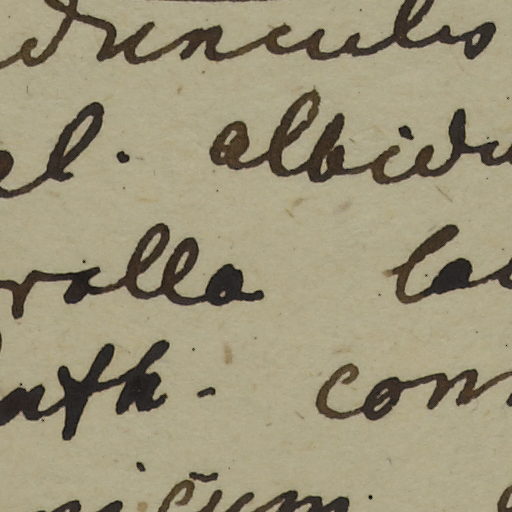 dunculis
el. albidu
ralla la
nth. con
icum